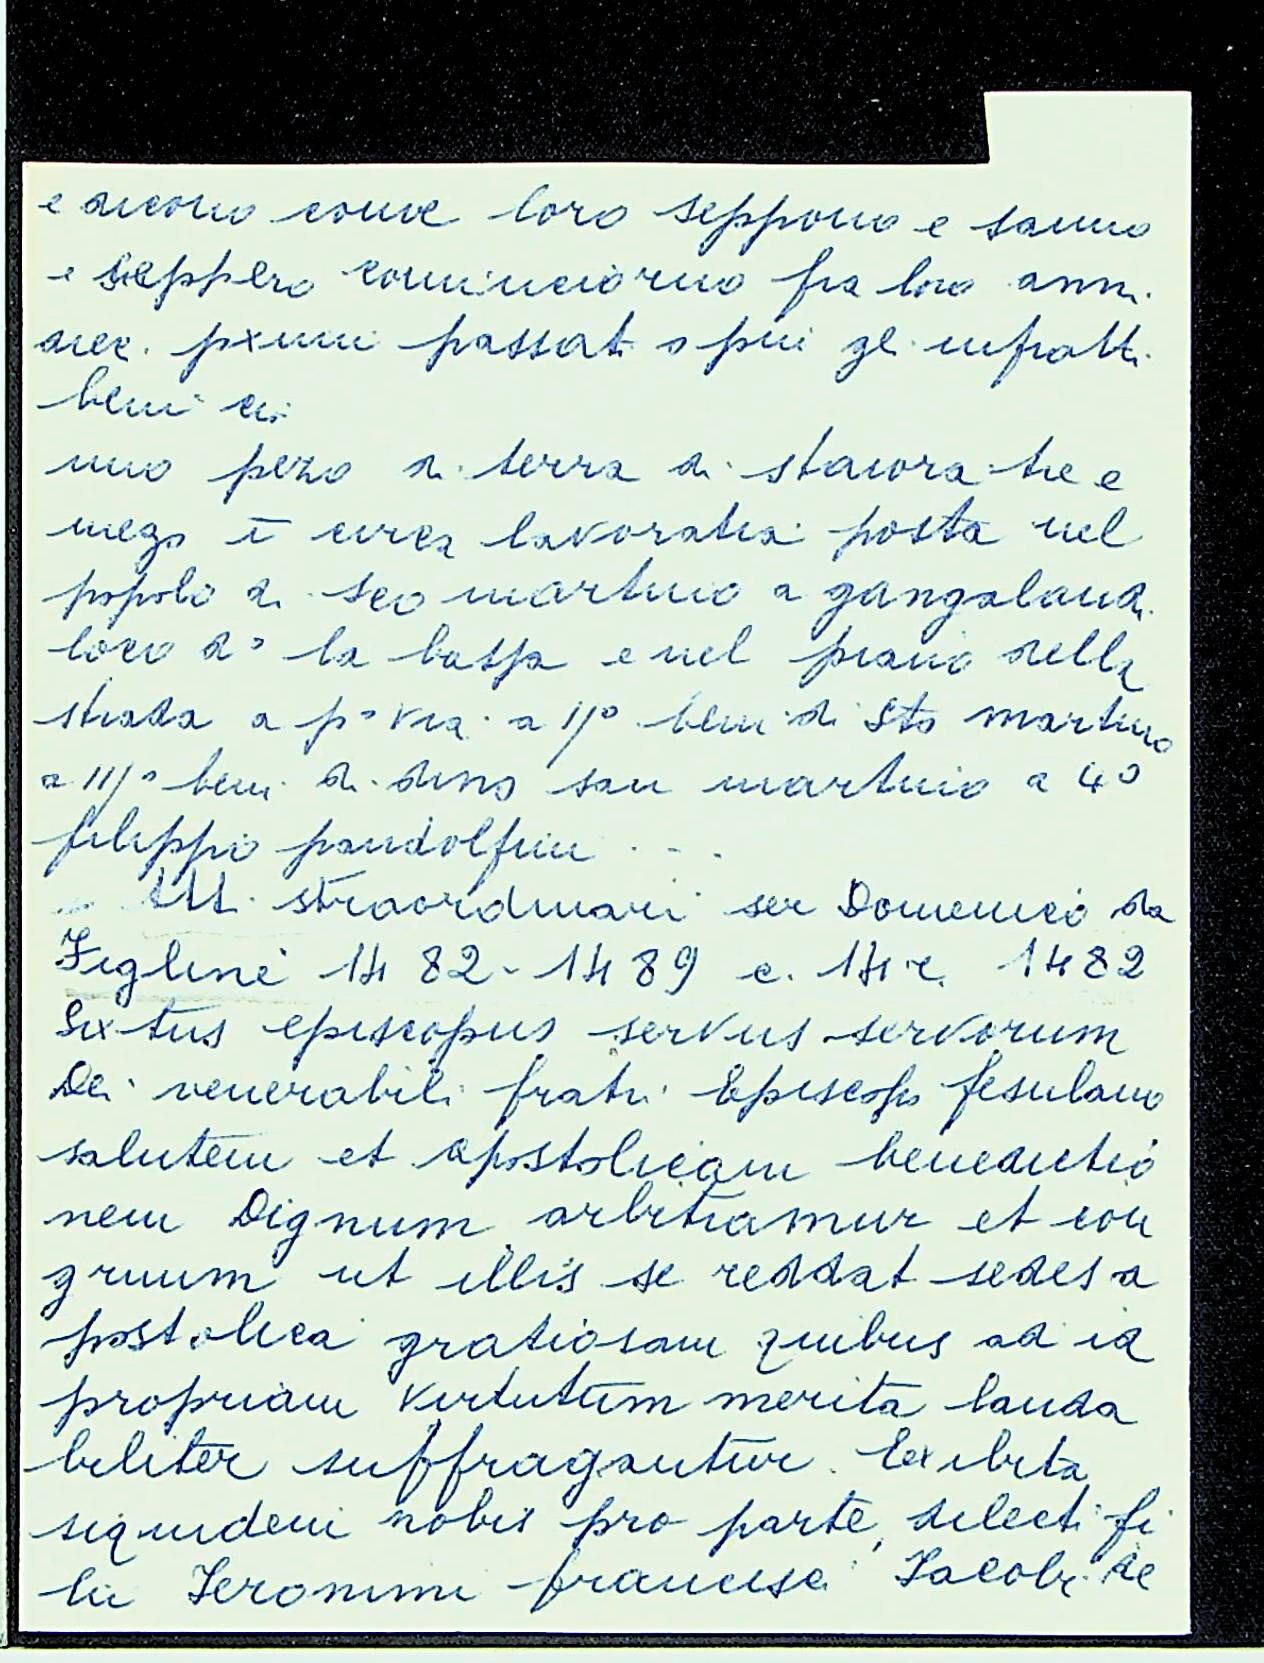 e dicono come loro seppono e sanno
e seppero cominciorno fra loro anni
diec. pxmi passati o piu gl. infratti
beni ci
uno pezo di terra di staiora tre e
mezo i circa lavoratia posta nel
popolo di sco martino a gangalandi
loco d° la bassa e nel piano della
strada a p° via a 11° beni di Sto martino
a 111° beni di dino san martino a 4°
filippo pandolfini ...
Atti straordinari ser Domenico da
Figline 1482-1489 c. 14 r. 1482
Sixtus episcopus servus servorum
Dei venerabili fratri Episcopo fesulano
salutem et apostolicam benedictio
nem Dignum arbitramur et con
gruum ut illis se reddat sedes a
postolica gratiosam quibus ad id
propriam virtutum merita lauda
biliter suffragantur. Exibita
siquidem nobis pro parte, dilecti fi
lii Ieronimi francisci Iacobi de